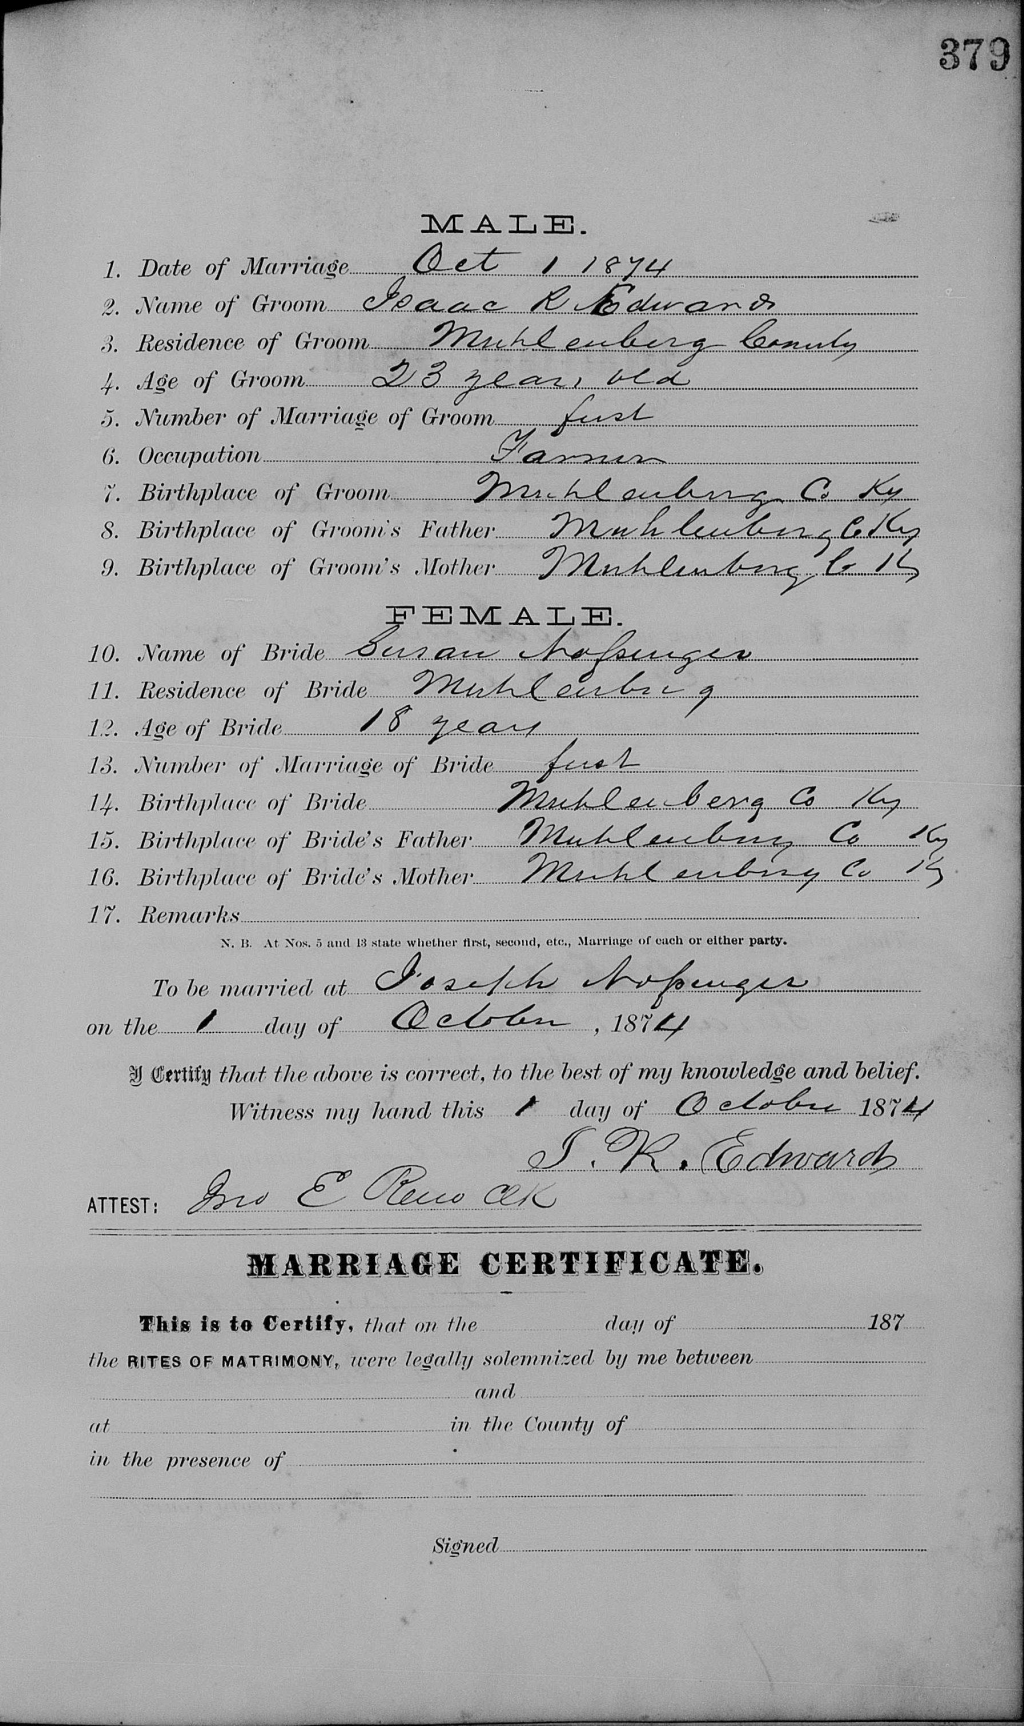 379
MALE.
1. Date of Marriage Oct 1 1874
2. Name of Groom Isaac R Edwards
3. Residence of Groom Muhlenberg County
4. Age of Groom 23 years old
5. Number of Marriage of Groom first
6. Occupation Farmer
7. Birthplace of Groom Muhlenberg Co Ky
8. Birthplace of Groom's Father Muhlenberg Co Ky
9. Birthplace of Groom's Mother Muhlenberg Co Ky
FEMALE.
10. Name of Bride Susan Noffsinger
11. Residence of Bride Muhlenberg
12. Age of Bride 18 years
13. Number of Marriage of Bride first
14. Birthplace of Bride Muhlenberg Co Ky
15. Birthplace of Bride's Father Muhlenberg Co Ky
16. Birthplace of Bride's Mother Muhlenberg Co Ky
17. Remarks
N. B. At Nos. 5 and 13 state whether first, second, etc., Marriage of each or either party.
To be married at Joseph Noffsinger
on the 1 day of October, 1874
I Certify that the above is correct, to the best of my knowledge and belief.
Witness my hand this 1 day of October 1874
I. R. Edwards
ATTEST: Jno E Reno Clk
MARRIAGE CERTIFICATE.
This is to Certify, that on the day of 187
the RITES OF MATRIMONY, were legally solemnized by me between
and
at in the County of
in the presence of
Signed